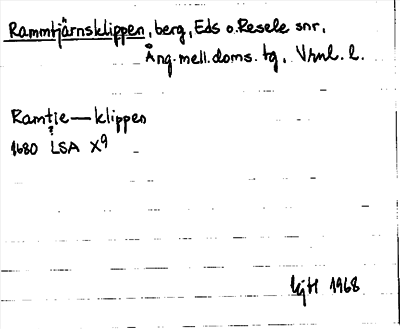 Rammtjärnsklippen, berg, Eds o. Resele snr,
Ång. mell. doms. tg, Vrnl. l.
Ramtie—klippen
?
1680 LSA X9
hjH 1968